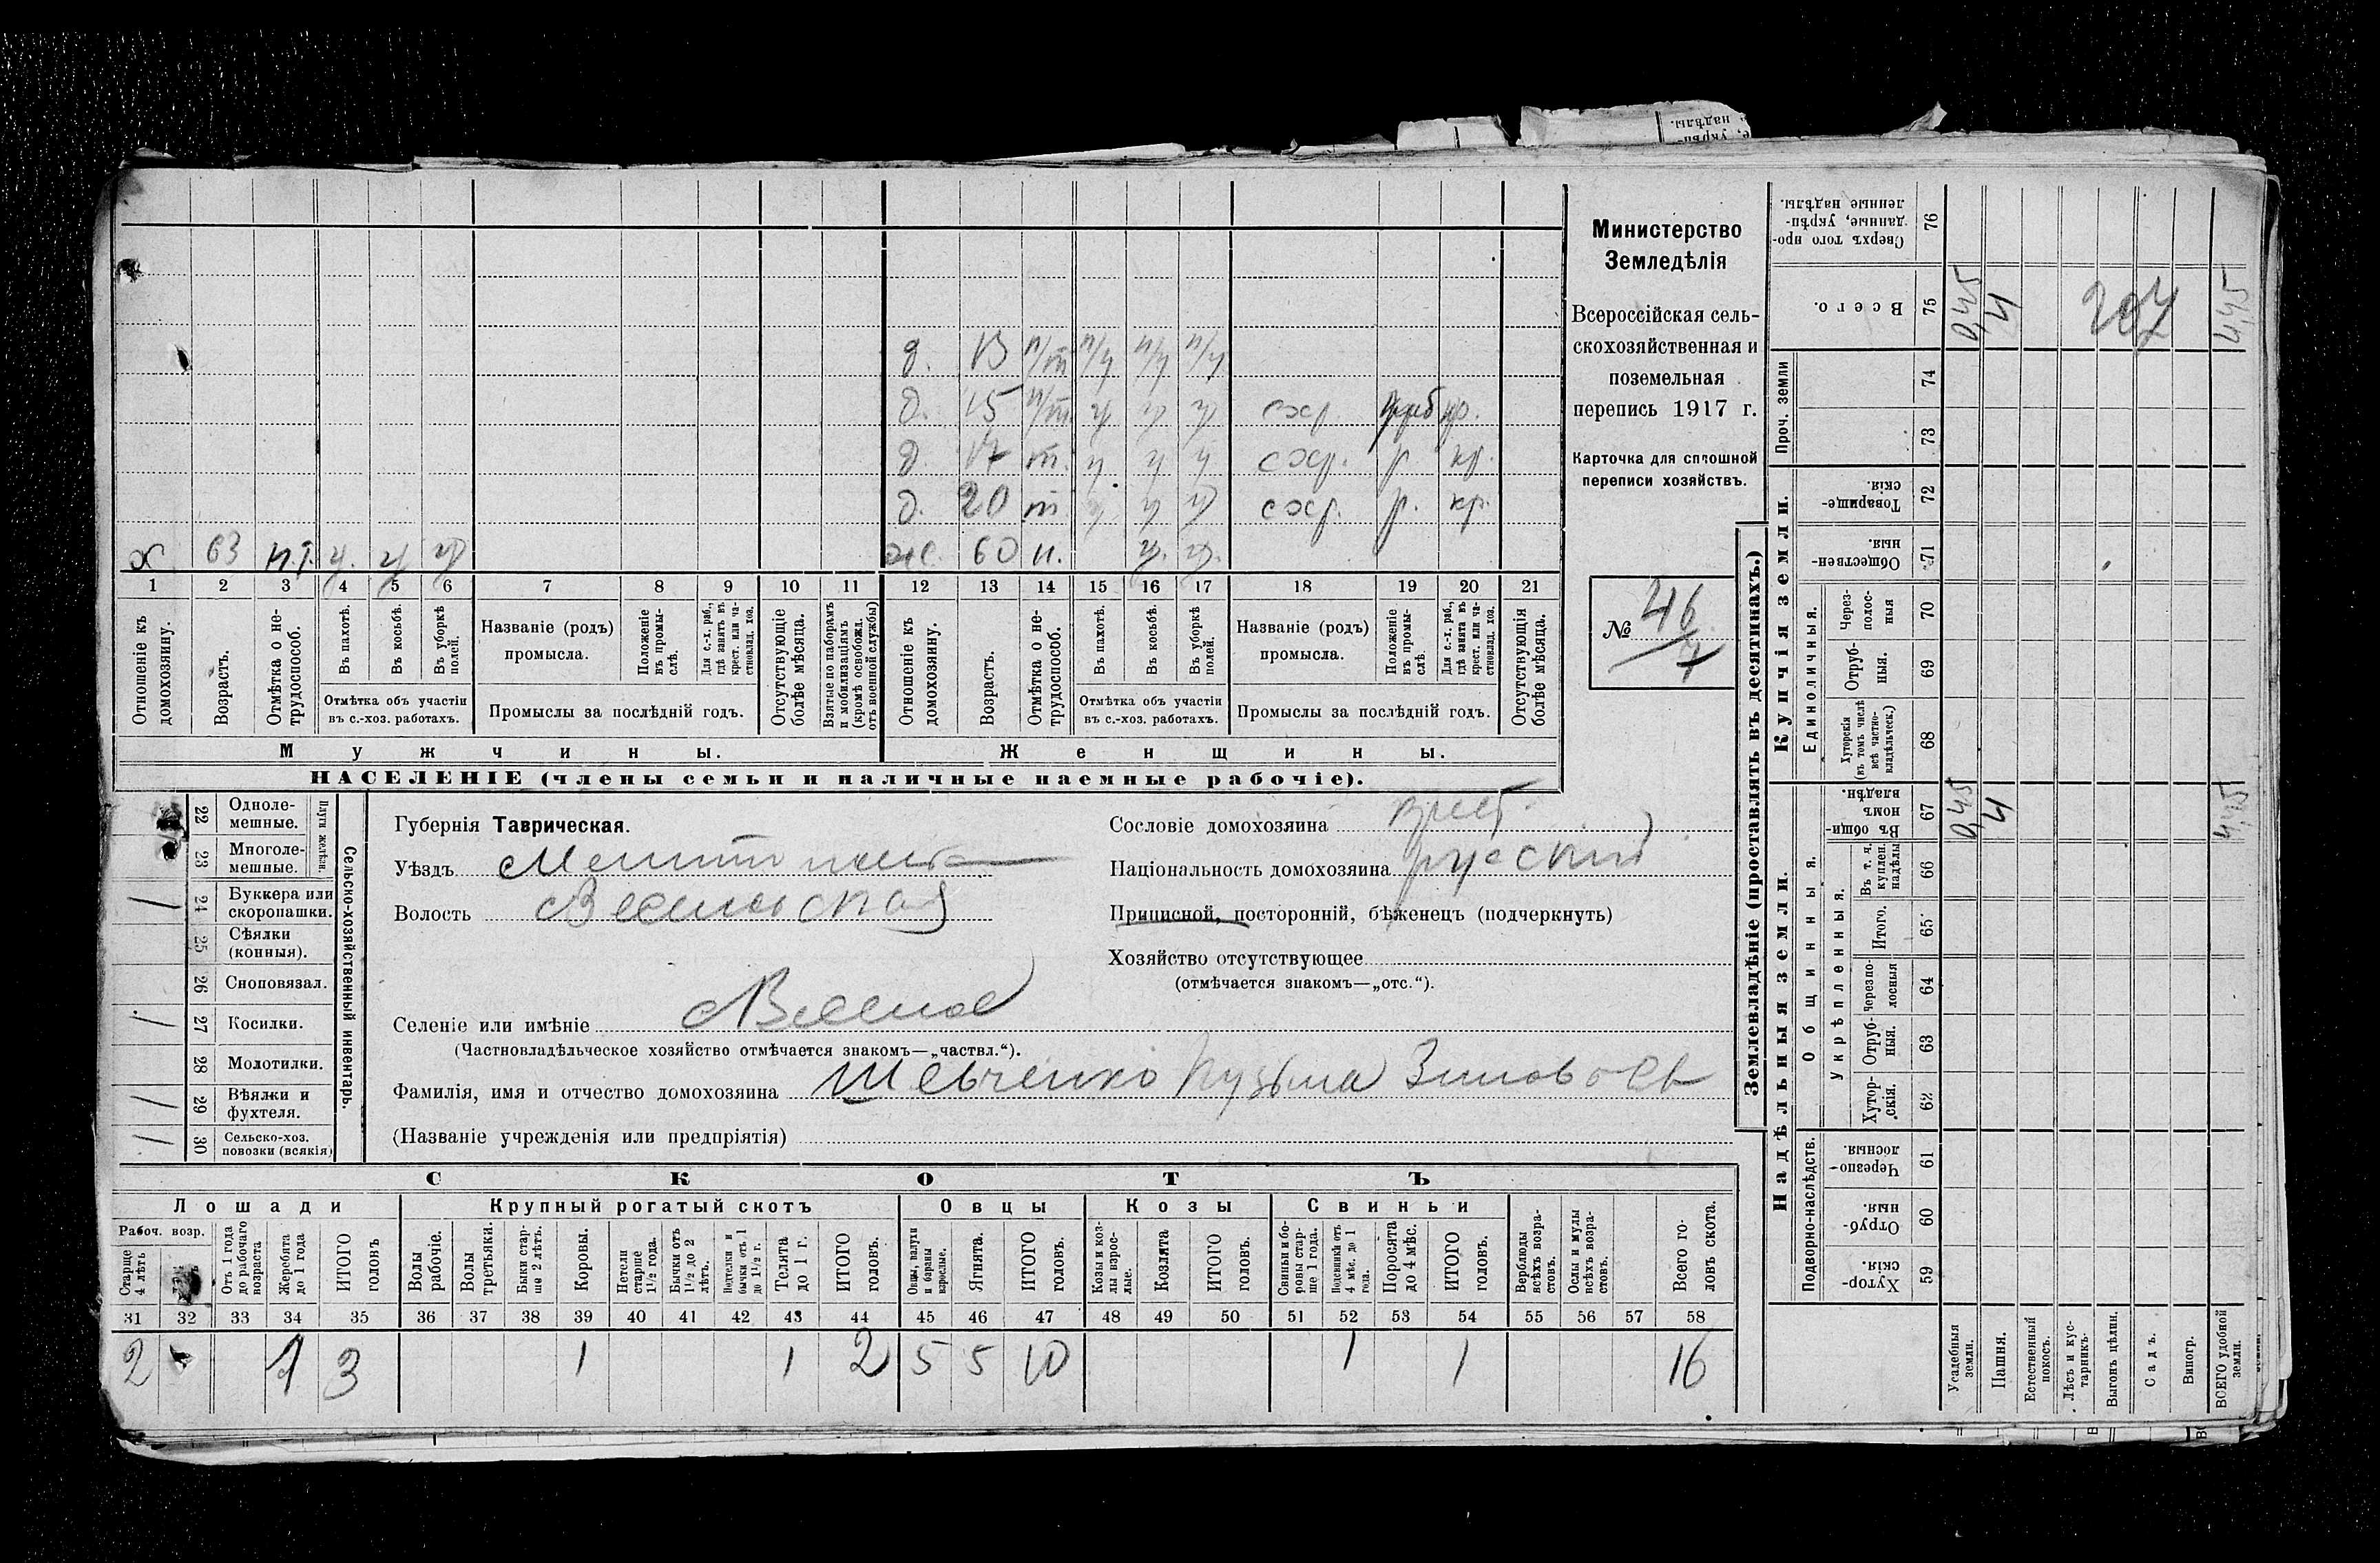 Министерство
Земледѣлія
Всероссійская сель-
скохозяйственная и
поземельная
перепись 1917 г.
Карточка для сплошной
переписи хозяйствъ.
№ 46/7
д. 13 п/т
д. 15 п/т. у у у схр. кр.
д. 17 т. у у у схр. р. кр.
д. 20 т у у у схр. р. кр.
х 63 н.т. у. у у
ж. 60 н. у. у.
1 2 3 4 5 6 7 8 9 10 11 12 13 14 15 16 17 18 19 20 21
Отношеніе къ домохозяину.
Возрастъ.
Отмѣтка о не-трудоспособ.
Въ пахотѣ.
Въ косьбѣ.
Въ уборкѣ полей.
Отмѣтка объ участіи
въ с.-хоз. работахъ.
Названіе (родъ)
промысла.
Положеніе въ промы-слѣ.
Для с.-х. раб., гдѣ занятъ въ крест. или ча-стновлад. хоз.
Промыслы за послѣдній годъ.
Отсутствующіе болѣе мѣсяца.
Взятые по наборамъ и мобилизаціямъ (кромѣ освобожд. отъ военной службы)
Отношеніе къ домохозяину.
Возрастъ.
Отмѣтка о не-трудоспособ.
Въ пахотѣ.
Въ косьбѣ.
Въ уборкѣ полей.
Отмѣтка объ участіи
въ с.-хоз. работахъ.
Названіе (родъ)
промысла.
Положеніе въ промы-слѣ.
Для с.-х. раб., гдѣ занята въ крест. или ча-стновлад. хоз.
Промыслы за послѣдній годъ.
Отсутствующія болѣе мѣсяца.
Мужчины. Женщины.
НАСЕЛЕНІЕ (члены семьи и наличные наемные рабочіе).
Сельско-хозяйственный инвентарь.
Плуги желѣзн.
22 Одноле-мешные.
23 Многоле-мешные.
24 Буккера или скоропашки. 1
25 Сѣялки (конныя).
26 Сноповязал.
27 Косилки. 1
28 Молотилки.
29 Вѣялки и фухтеля. 1
30 Сельско-хоз. повозки (всякія) 1
Губернія Таврическая.
Уѣздъ
Волость Веселовская
Селеніе или имѣніе Веселое
(Частновладѣльческое хозяйство отмѣчается знакомъ—„частвл.“).
Фамилія, имя и отчество домохозяина Шевченко Кузьма Зиновьев
(Названіе учрежденія или предпріятія)
Сословіе домохозяина крест.
Національность домохозяина русскій
Приписной, посторонній, бѣженецъ (подчеркнуть)
Хозяйство отсутствующее
(отмѣчается знакомъ—„отс.“).
СКОТЪ
Лошади Крупный рогатый скотъ Овцы Козы Свиньи
Рабоч. возр.
Старше 4 лѣтъ
Отъ 1 года до рабочаго возраста
Жеребята до 1 года
ИТОГО головъ
Волы рабочіе.
Волы третьяки.
Быки стар-ше 2 лѣтъ.
Коровы.
Нетели старше 1½ года.
Бычки отъ 1½ до 2 лѣтъ.
Подтелки и бычки отъ 1 до 1½ г.
Телята до 1 г.
ИТОГО головъ.
Овцы, валухи и бараны взрослые.
Ягнята.
ИТОГО головъ.
Козы и коз-лы взрос-лые.
Козлята
ИТОГО головъ.
Свиньи и бо-ровы стар-ше 1 года.
Подсвинки отъ 4 мѣс. до 1 года.
Поросята до 4 мѣс.
ИТОГО головъ.
Верблюды всѣхъ возра-стовъ.
Ослы и мулы всѣхъ возра-стовъ.
Всего го-ловъ скота.
31 32 33 34 35 36 37 38 39 40 41 42 43 44 45 46 47 48 49 50 51 52 53 54 55 56 57 58
2 1 3 1 1 2 5 5 10 1 1 16
Землевладѣніе (проставлять въ десятинахъ.)
Надѣльныя земли. Купчія земли.
Подворно-наслѣдств.
Общинныя.
Укрѣпленныя.
Единоличныя.
Проч. земли
59 Хутор-скія.
60 Отруб-ныя.
61 Черезпо-лосныя.
62 Хутор-скія.
63 Отруб-ныя.
64 Черезпо-лосныя
65 Итого.
66 Въ т. ч. куплен. надѣлы
67 Въ общин-номъ владѣн.
68 Хуторскія (въ томъ числѣ всѣ частно-владѣльческ.)
69 Отруб-ныя.
70 Через-полос-ныя
71 Обществен-ныя.
72 Товарище-скія.
73
74
75 Всего.
76 Сверхъ того про-данные, укрѣп-ленные надѣлы.
Усадебныя земли. 0,45 0,45
Пашня. 4 4
Естественный покосъ.
Лѣсъ и кус-тарникъ.
Выгонъ цѣлин.
Садъ.
Виногр.
ВСЕГО удобной земли. 4,45 4,45